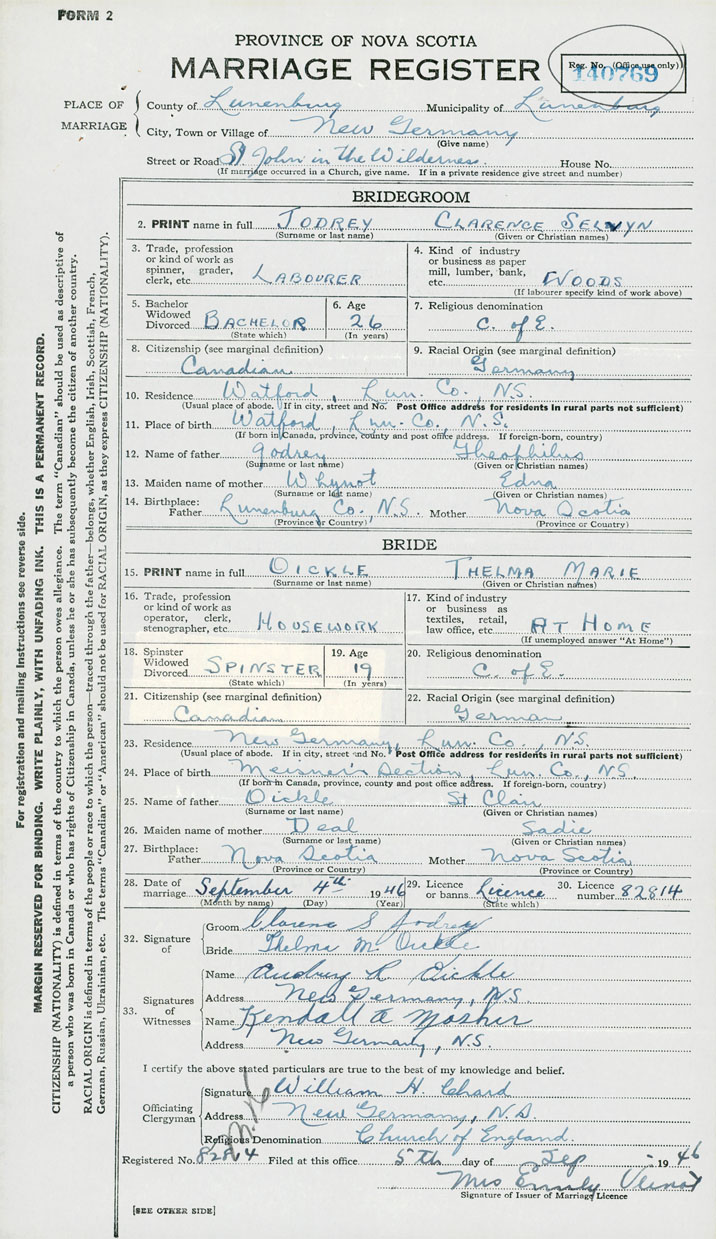 FORM 2
PROVINCE OF NOVA SCOTIA
MARRIAGE REGISTER
Reg. No. (Office use only)
140769
PLACE OF MARRIAGE
County of Lunenburg Municipality of Lunenburg
City, Town or Village of New Germany
(Give name)
Street or Road St John in the Wilderness House No.
(If marriage occurred in a Church, give name. If in a private residence give street and number)
BRIDEGROOM
2. PRINT name in full JODREY CLARENCE SELWYN
(Surname or last name) (Given or Christian names)
3. Trade, profession or kind of work as spinner, grader, clerk, etc. LABOURER
4. Kind of industry or business as paper mill, lumber, bank, etc. WOODS
(If labourer specify kind of work above)
5. Bachelor Widowed Divorced BACHELOR
(State which)
6. Age 26
(In years)
7. Religious denomination C. of E.
8. Citizenship (see marginal definition) Canadian
9. Racial Origin (see marginal definition) Germany
10. Residence Watford, Lun. Co., N.S.
(Usual place of abode. If in city, street and No. Post Office address for residents in rural parts not sufficient)
11. Place of birth Watford, Lun. Co., N.S.
(If born in Canada, province, county and post office address. If foreign-born, country)
12. Name of father Jodrey Theophilus
(Surname or last name) (Given or Christian names)
13. Maiden name of mother Whynot Edna
(Surname or last name) (Given or Christian names)
14. Birthplace: Father Lunenburg Co., N.S. Mother Nova Scotia
(Province or Country) (Province or Country)
BRIDE
15. PRINT name in full OICKLE THELMA MARIE
(Surname or last name) (Given or Christian names)
16. Trade, profession or kind of work as operator, clerk, stenographer, etc. HOUSEWORK
17. Kind of industry or business as textiles, retail, law office, etc. AT HOME
(If unemployed answer "At Home")
18. Spinster Widowed Divorced SPINSTER
(State which)
19. Age 19
(In years)
20. Religious denomination C. of E.
21. Citizenship (see marginal definition) Canadian
22. Racial Origin (see marginal definition) German
23. Residence New Germany, Lun. Co., N.S.
(Usual place of abode. If in city, street and No. Post Office address for residents in rural parts not sufficient)
24. Place of birth Meisner's Section, Lun. Co., N.S.
(If born in Canada, province, county and post office address. If foreign-born, country)
25. Name of father Oickle St Clair
(Surname or last name) (Given or Christian names)
26. Maiden name of mother Deal Sadie
(Surname or last name) (Given or Christian names)
27. Birthplace: Father Nova Scotia Mother Nova Scotia
(Province or Country) (Province or Country)
28. Date of marriage September 4th 1946
(Month by name) (Day) (Year)
29. Licence or banns Licence
(State which)
30. Licence number 82814
32. Signature of
Groom Clarence S Jodrey
Bride Thelma M. Oickle
33. Signatures of Witnesses
Name Audrey R Oickle
Address New Germany, N.S.
Name Kendall A Mosher
Address New Germany, N.S.
I certify the above stated particulars are true to the best of my knowledge and belief.
Officiating Clergyman
Signature William H. Chard
Address New Germany, N.S.
Religious Denomination Church of England.
Registered No. 82814 Filed at this office 5th day of Sep 1946
Mrs Emily
Signature of Issuer of Marriage Licence
[SEE OTHER SIDE]
For registration and mailing instructions see reverse side.
MARGIN RESERVED FOR BINDING. WRITE PLAINLY, WITH UNFADING INK. THIS IS A PERMANENT RECORD.
CITIZENSHIP (NATIONALITY) is defined in terms of the country to which the person owes allegiance. The term "Canadian" should be used as descriptive of
a person who was born in Canada or who has rights of Citizenship in Canada, unless he or she has subsequently become the citizen of another country.
RACIAL ORIGIN is defined in terms of the people or race to which the person—traced through the father—belongs, whether English, Irish, Scottish, French,
German, Russian, Ukrainian, etc. The terms "Canadian" or "American" should not be used for RACIAL ORIGIN, as they express CITIZENSHIP (NATIONALITY).